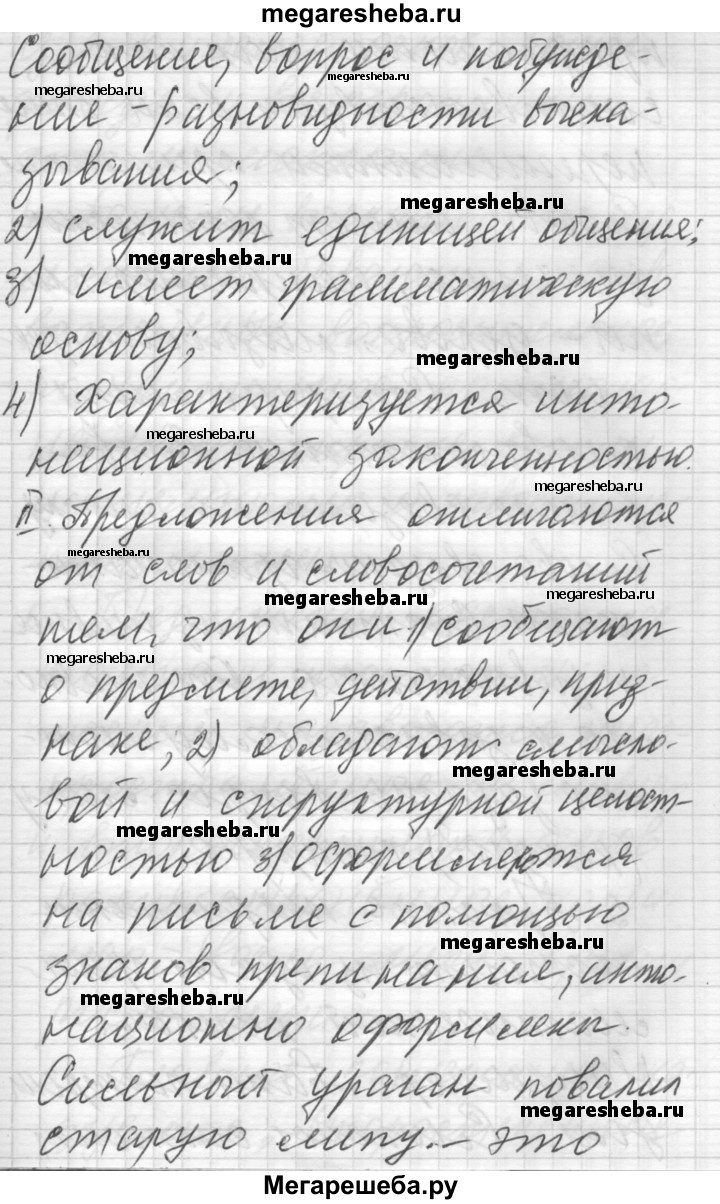 megaresheba.ru
Сообщение, вопрос и побужде-
megaresheba.ru
megaresheba.ru
ние - разновидности выска-
зывания;
megaresheba.ru
2) служит единицей общения;
megaresheba.ru
3) имеет грамматическую
основу;
megaresheba.ru
4) Характеризуется инто-
megaresheba.ru
национной законченностью.
megaresheba.ru
II. Предложения отличаются
megaresheba.ru
от слов и словосочетаний
megaresheba.ru
megaresheba.ru
тем, что они 1) сообщают
megaresheba.ru
о предмете, действии, приз-
наке; 2) обладают смысло-
megaresheba.ru
вой и структурной целост-
megaresheba.ru
ностью 3) оформляются
на письме с помощью
megaresheba.ru
знаков препинания, инто-
megaresheba.ru
национно оформлены.
Сильный ураган повалил
megaresheba.ru
старую липу. - это
Мегарешеба.ру